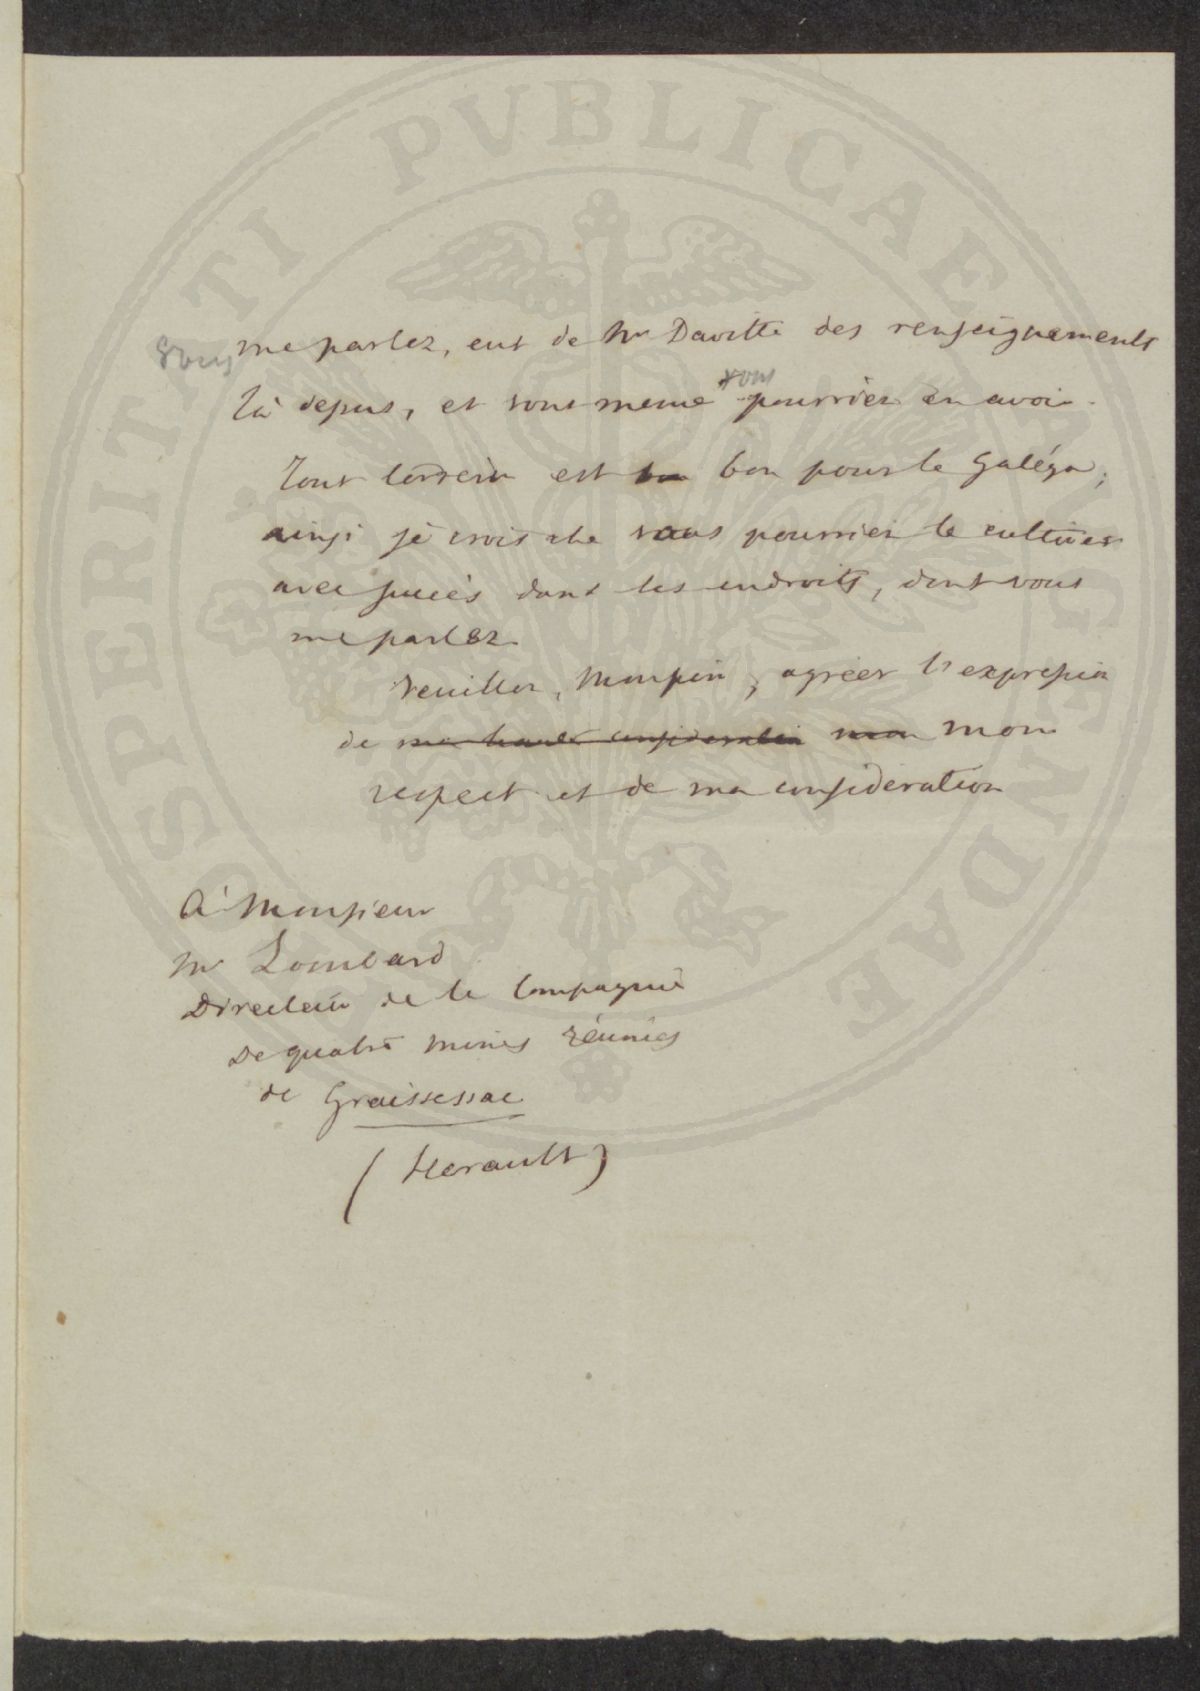 PROSPERITATI PVBLICAE AVGENDAE
vous me parlez, eut de Mr Davitte des renseignements
là depus, et vous meme vous pourriez en avoir.
Tout terrein est bon pour le Galéga;
ainsi je crois que vous pourriez le cultiver
avec succès dans les endroits, dont vous
me parlez.
Veuillez, Monsieur, agréer l'expression
de ma haute consideration mon mon
respect et de ma consideration
à Monsieur
Mr Lombard
Directeur de la Compagnie
De quatre mines réunies
de Graissessac
(Herault)